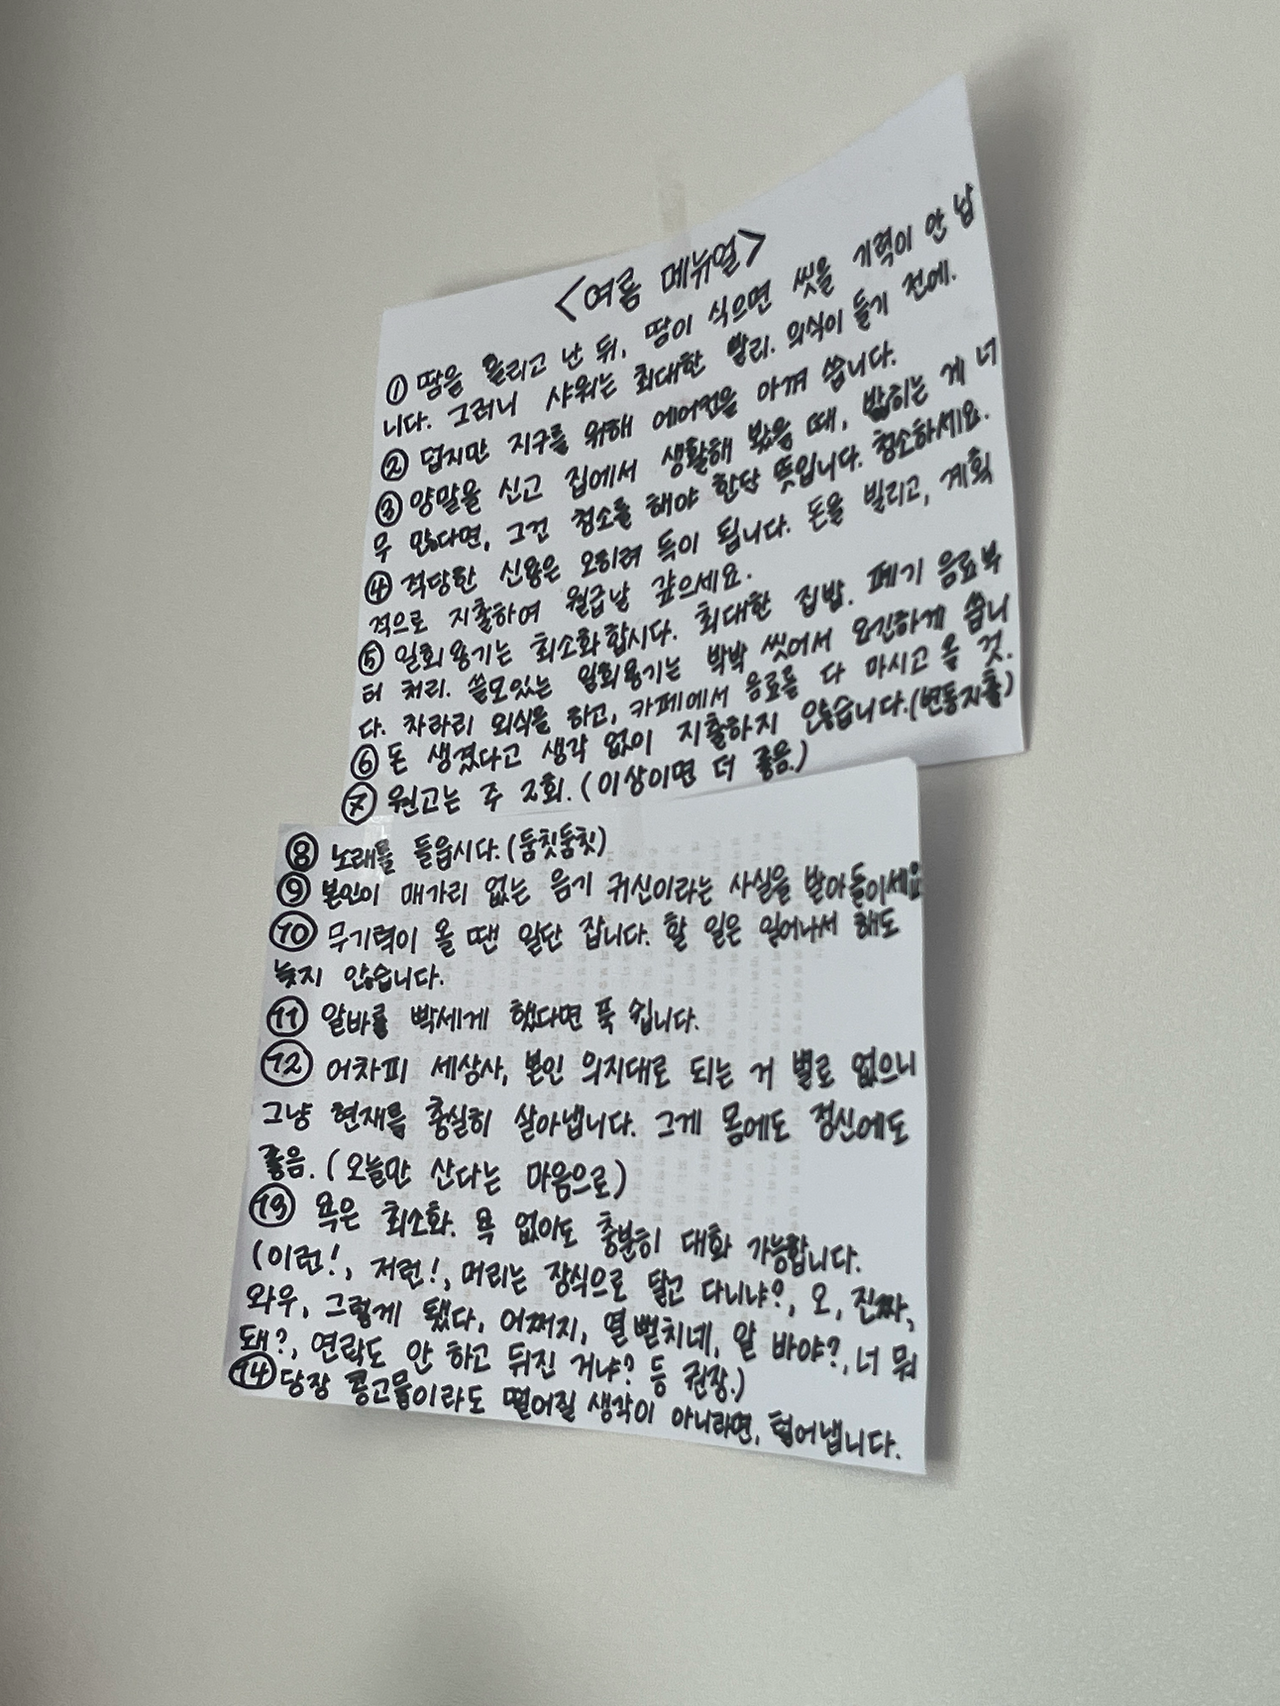 <여름 메뉴얼>
① 땀을 흘리고 난 뒤, 땀이 식으면 씻을 기력이 안 납
니다. 그러니 샤워는 최대한 빨리. 의식이 들기 전에.
② 덥지만 지구를 위해 에어컨을 아껴 씁니다.
③ 양말을 신고 집에서 생활해 봤을 때, 밟히는 게 너
무 많다면, 그건 청소를 해야 한단 뜻입니다. 청소하세요.
④ 적당한 신용은 오히려 득이 됩니다. 돈을 빌리고, 계획
적으로 지출하여 월급날 갚으세요.
⑤ 일회용기는 최소화합시다. 최대한 집밥. 폐기 음료부
터 처리. 쓸모있는 일회용기는 박박 씻어서 요긴하게 씁니
다. 차라리 외식을 하고, 카페에서 음료를 다 마시고 올 것.
⑥ 돈 생겼다고 생각 없이 지출하지 않습니다.(변동지출)
⑦ 원고는 주 2회. (이상이면 더 좋음.)
⑧ 노래를 들읍시다.(둠칫둠칫)
⑨ 본인이 매가리 없는 음기 귀신이라는 사실을 받아들이세요
⑩ 무기력이 올 땐 일단 잡니다. 할 일은 일어나서 해도
늦지 않습니다.
⑪ 알바를 빡세게 했다면 푹 쉽니다.
⑫ 어차피 세상사, 본인 의지대로 되는 거 별로 없으니
그냥 현재를 충실히 살아냅니다. 그게 몸에도 정신에도
좋음. (오늘만 산다는 마음으로)
⑬ 욕은 최소화. 욕 없이도 충분히 대화 가능합니다.
(이런!, 저런!, 머리는 장식으로 달고 다니냐?, 오, 진짜,
와우, 그렇게 됐다, 어쩌지, 열뻗치네, 알 바야?, 너 뭐
돼?, 연락도 안 하고 뒤진 거냐? 등 권장.)
⑭ 당장 콩고물이라도 떨어질 생각이 아니라면, 털어냅니다.